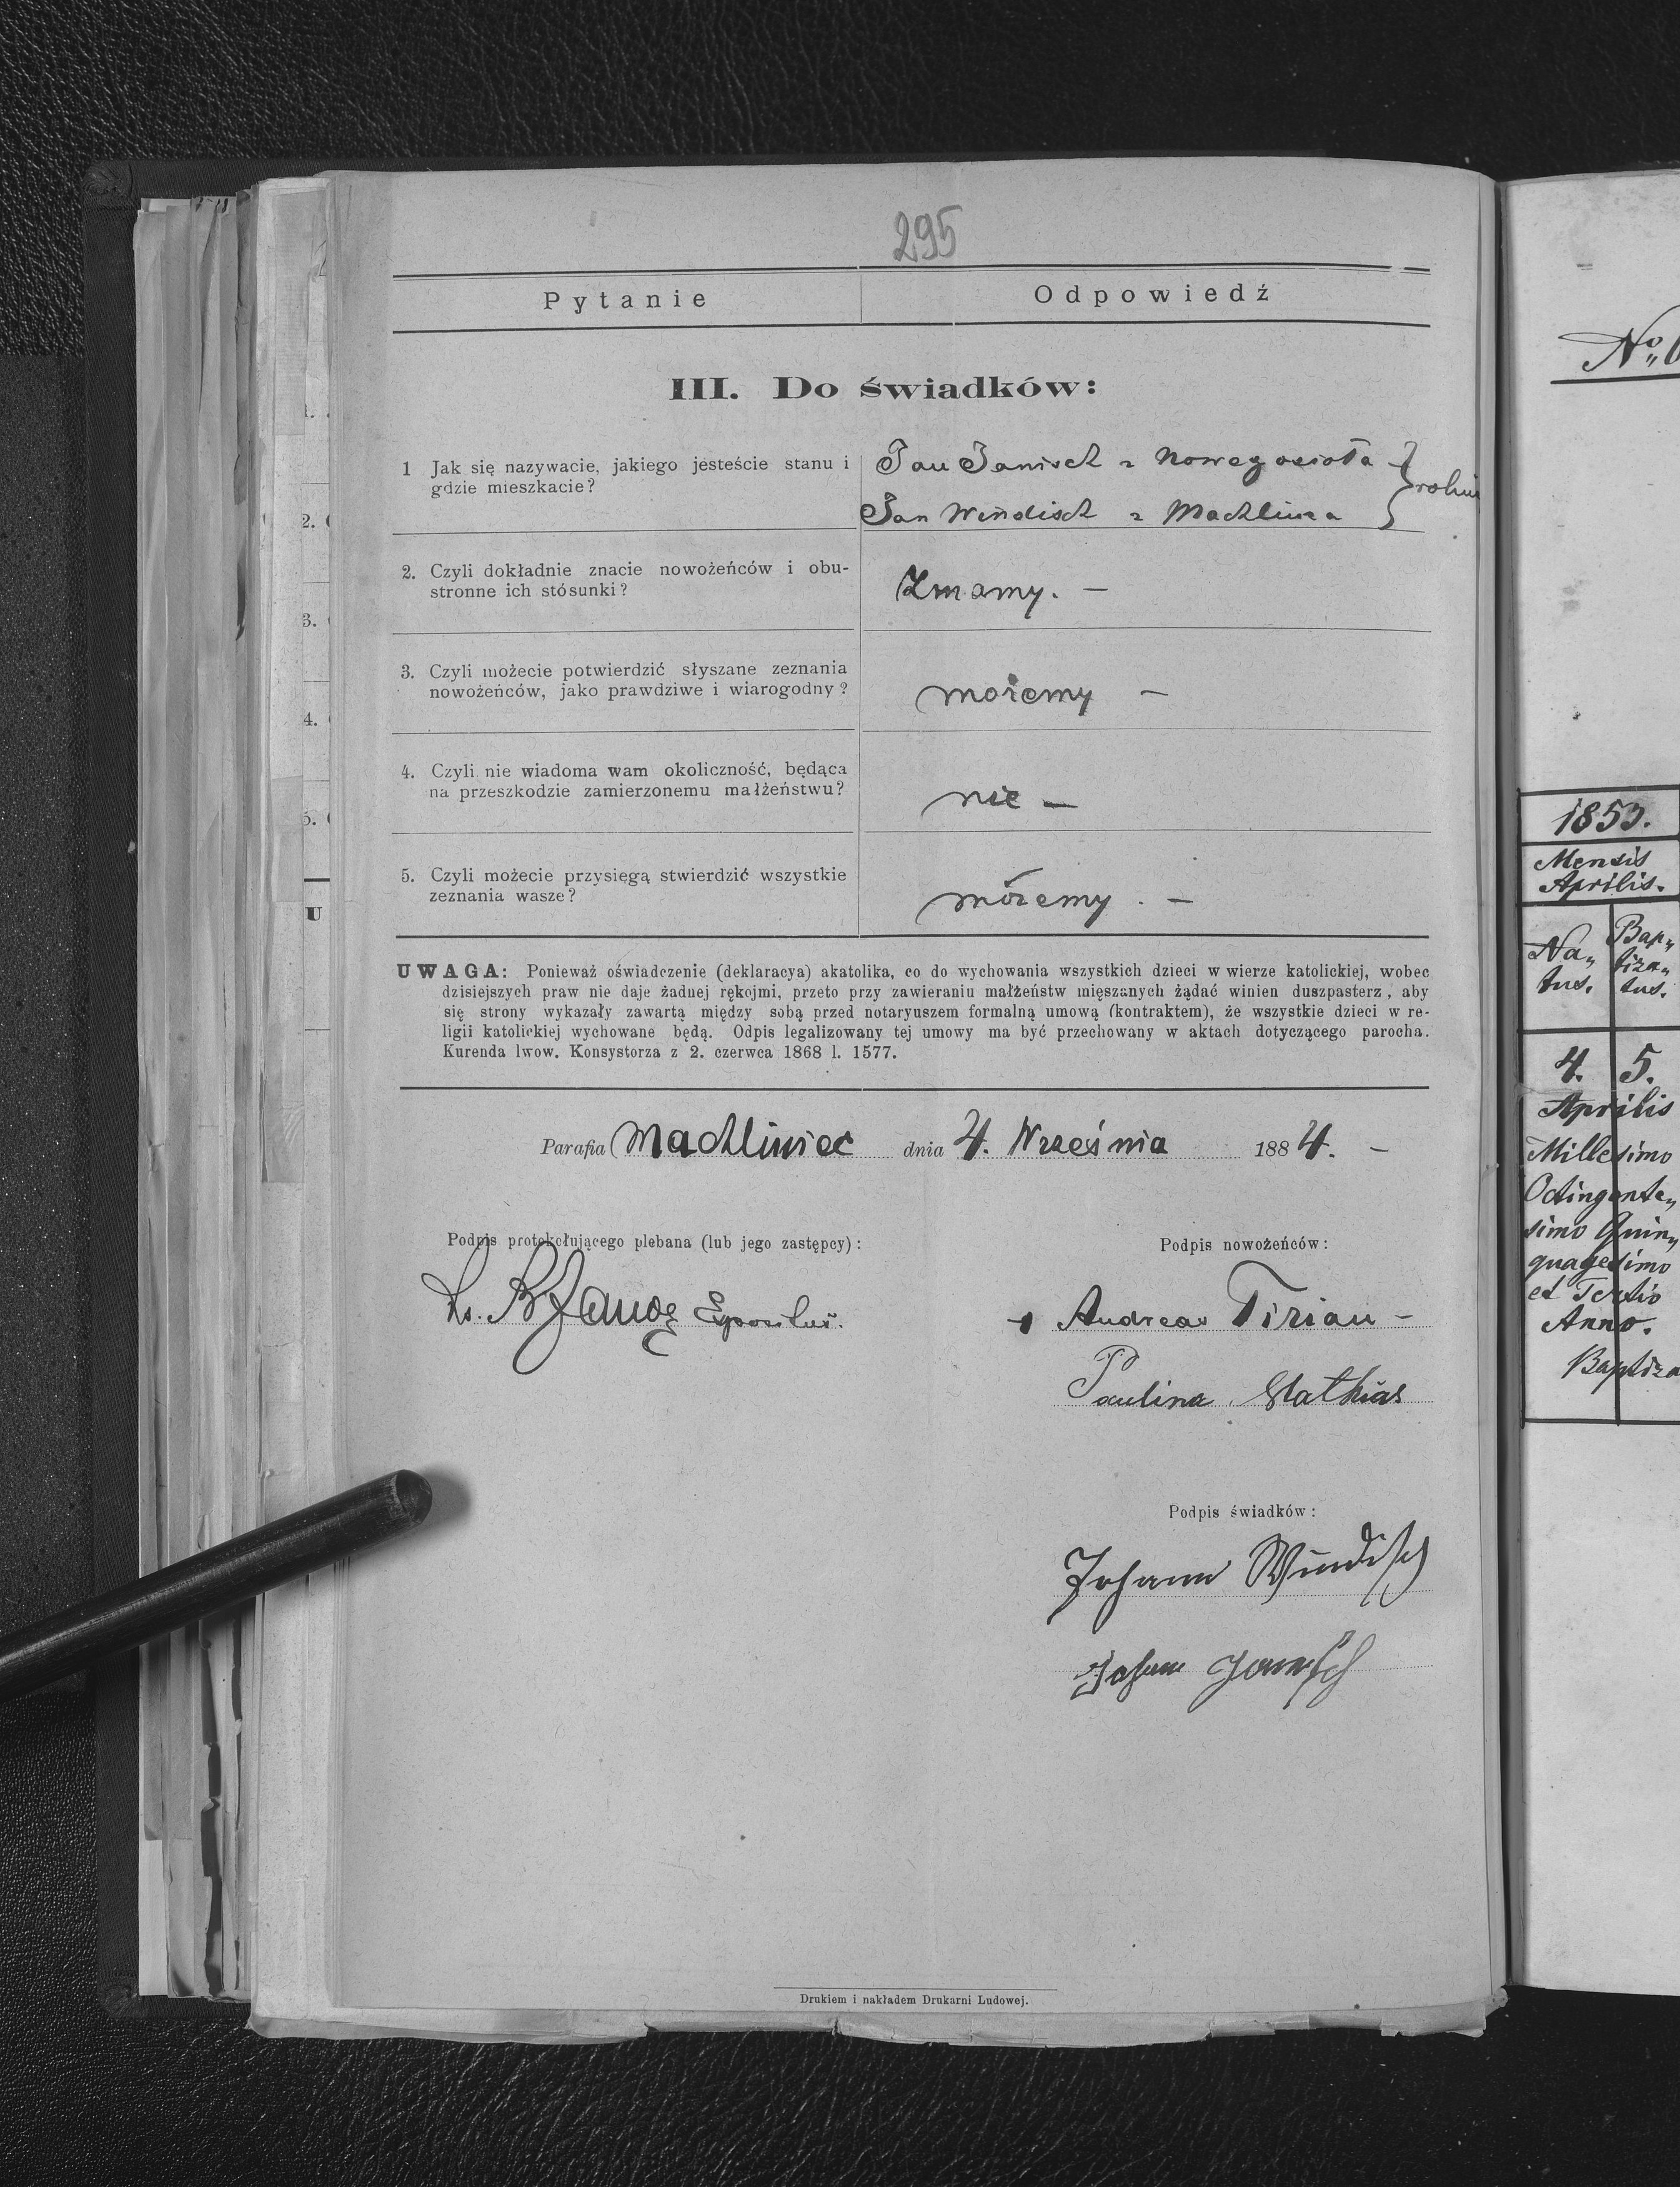 295
Pytanie
Odpowiedź
III. Do świadków:
1 Jak się nazywacie, jakiego jesteście stanu i
gdzie mieszkacie?
Jan Janisch z Nowegosioła
Jan Windisch z Machlińca
2. Czyli dokładnie znacie nowożeńców i obu-
stronne ich stósunki?
Znamy. —
3. Czyli możecie potwierdzić słyszane zeznania
nowożeńców, jako prawdziwe i wiarogodny?
możemy —
4. Czyli nie wiadoma wam okoliczność, będąca
na przeszkodzie zamierzonemu małżeństwu?
nie —
5. Czyli możecie przysięgą stwierdzić wszystkie
zeznania wasze?
możemy. —
UWAGA: Ponieważ oświadczenie (deklaracya) akatolika, co do wychowania wszystkich dzieci w wierze katolickiej, wobec
dzisiejszych praw nie daje żadnej rękojmi, przeto przy zawieraniu małżeństw mięszanych żądać winien duszpasterz, aby
się strony wykazały zawartą między sobą przed notaryuszem formalną umową (kontraktem), że wszystkie dzieci w re-
ligii katolickiej wychowane będą. Odpis legalizowany tej umowy ma być przechowany w aktach dotyczącego parocha.
Kurenda lwow. Konsystorza z 2. czerwca 1868 l. 1577.
Parafia Machliniec dnia 4. Września 1884. —
Podpis protokołującego plebana (lub jego zastępcy):
Podpis nowożeńców:
Ks. Expositus.
Andreas Tirian —
Paulina Mathias
Podpis świadków:
Johann Windisch
Johann Janisch
Drukiem i nakładem Drukarni Ludowej.
1.
2.
3.
4.
5.
U
1853.
Mensis
Aprilis.
Na„ Bap„
tus. tiza„
tus.
4. 5.
Aprilis
Millesimo
Octingente„
simo Quin„
quagesimo
et Tertio
Anno.